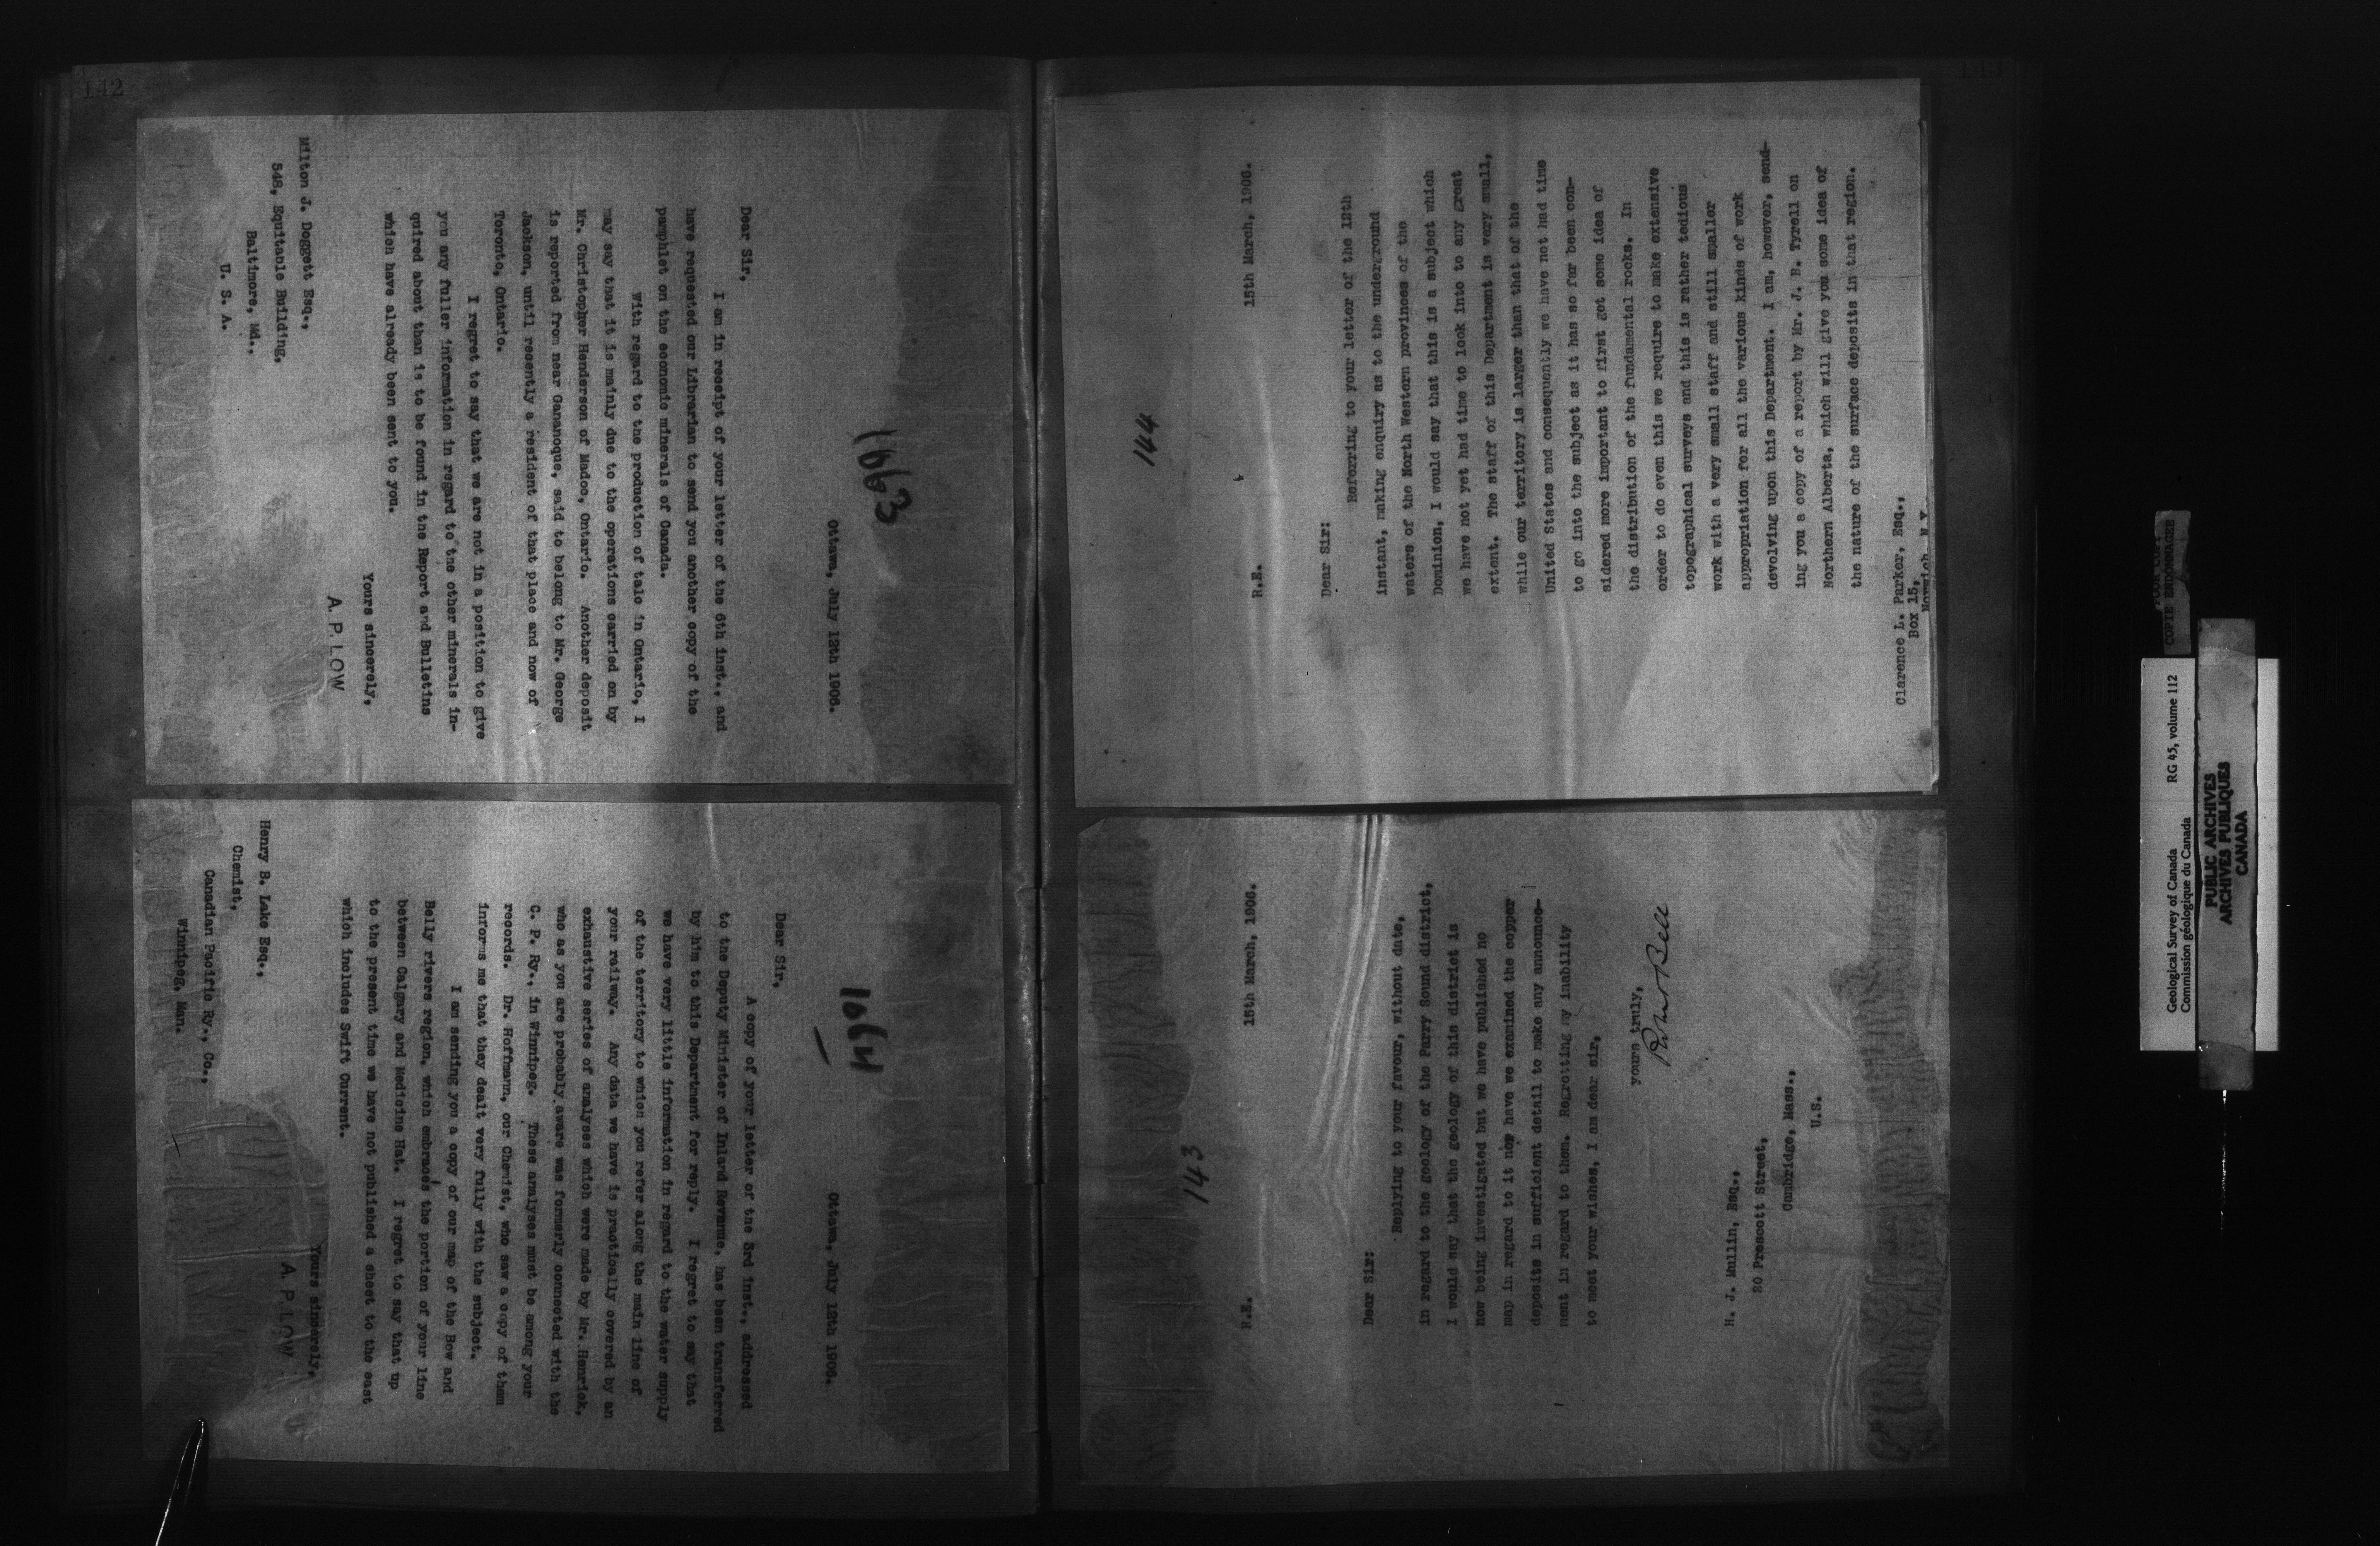 142
1063
Ottawa, July 12th 1906.
Dear Sir,
I am in receipt of your letter of the 6th inst., and
have requested our Librarian to send you another copy of the
pamphlet on the economic minerals of Canada.
With regard to the production of talc in Ontario, I
may say that it is mainly due to the operations carried on by
Mr. Christopher Henderson of Madoc, Ontario. Another deposit
is reported from near Gananoque, said to belong to Mr. George
Jackson, until recently a resident of that place and now of
Toronto, Ontario.
I regret to say that we are not in a position to give
you any fuller information in regard to the other minerals in-
quired about than is to be found in the Report and Bulletins
which have already been sent to you.
Yours sincerely,
A. P. LOW
Milton J. Doggett Esq.,
548, Equitable Building,
Baltimore, Md.,
U. S. A.
1064
Ottawa, July 12th 1906.
Dear Sir,
A copy of your letter of the 3rd inst., addressed
to the Deputy Minister of Inland Revenue, has been transferred
by him to this Department for reply. I regret to say that
we have very little information in regard to the water supply
of the territory to which you refer along the main line of
your railway. Any data we have is practically covered by an
exhaustive series of analyses which were made by Mr. Henrick,
who as you are probably aware was formerly connected with the
C. P. Ry., in Winnipeg. These analyses must be among your
records. Dr. Hoffmann, our Chemist, who saw a copy of them
informs me that they dealt very fully with the subject.
I am sending you a copy of our map of the Bow and
Belly rivers region, which embraces the portion of your line
between Calgary and Medicine Hat. I regret to say that up
to the present time we have not published a sheet to the east
which includes Swift Current.
Yours sincerely,
A. P. LOW
Henry B. Lake Esq.,
Chemist,
Canadian Pacific Ry., Co.,
Winnipeg, Man.
143
144
15th March, 1906.
R.E.
Dear Sir:
Referring to your letter of the 12th
instant, making enquiry as to the underground
waters of the North Western provinces of the
Dominion, I would say that this is a subject which
we have not yet had time to look into to any great
extent. The staff of this Department is very small,
while our territory is larger than that of the
United States and consequently we have not had time
to go into the subject as it has so far been con-
sidered more important to first get some idea of
the distribution of the fundamental rocks. In
order to do even this we require to make extensive
topographical surveys and this is rather tedious
work with a very small staff and still smaller
appropriation for all the various kinds of work
devolving upon this Department. I am, however, send-
ing you a copy of a report by Mr. J. B. Tyrell on
Northern Alberta, which will give you some idea of
the nature of the surface deposits in that region.
Clarence L. Parker, Esq.,
Box 15,
143
15th March, 1906.
R.E.
Dear Sir:
Replying to your favour, without date,
in regard to the geology of the Parry Sound district,
I would say that the geology of this district is
now being investigated but we have published no
map in regard to it nor have we examined the copper
deposits in sufficient detail to make any announce-
ment in regard to them. Regretting my inability
to meet your wishes, I am dear sir,
yours truly,
Robert Bell
H. J. Mullin, Esq.,
20 Prescott Street,
Cambridge, Mass.,
U.S.
POOR COPY
COPIE ENDOMMAGÉE
Geological Survey of Canada RG 45, volume 112
Commission géologique du Canada
PUBLIC ARCHIVES
ARCHIVES PUBLIQUES
CANADA